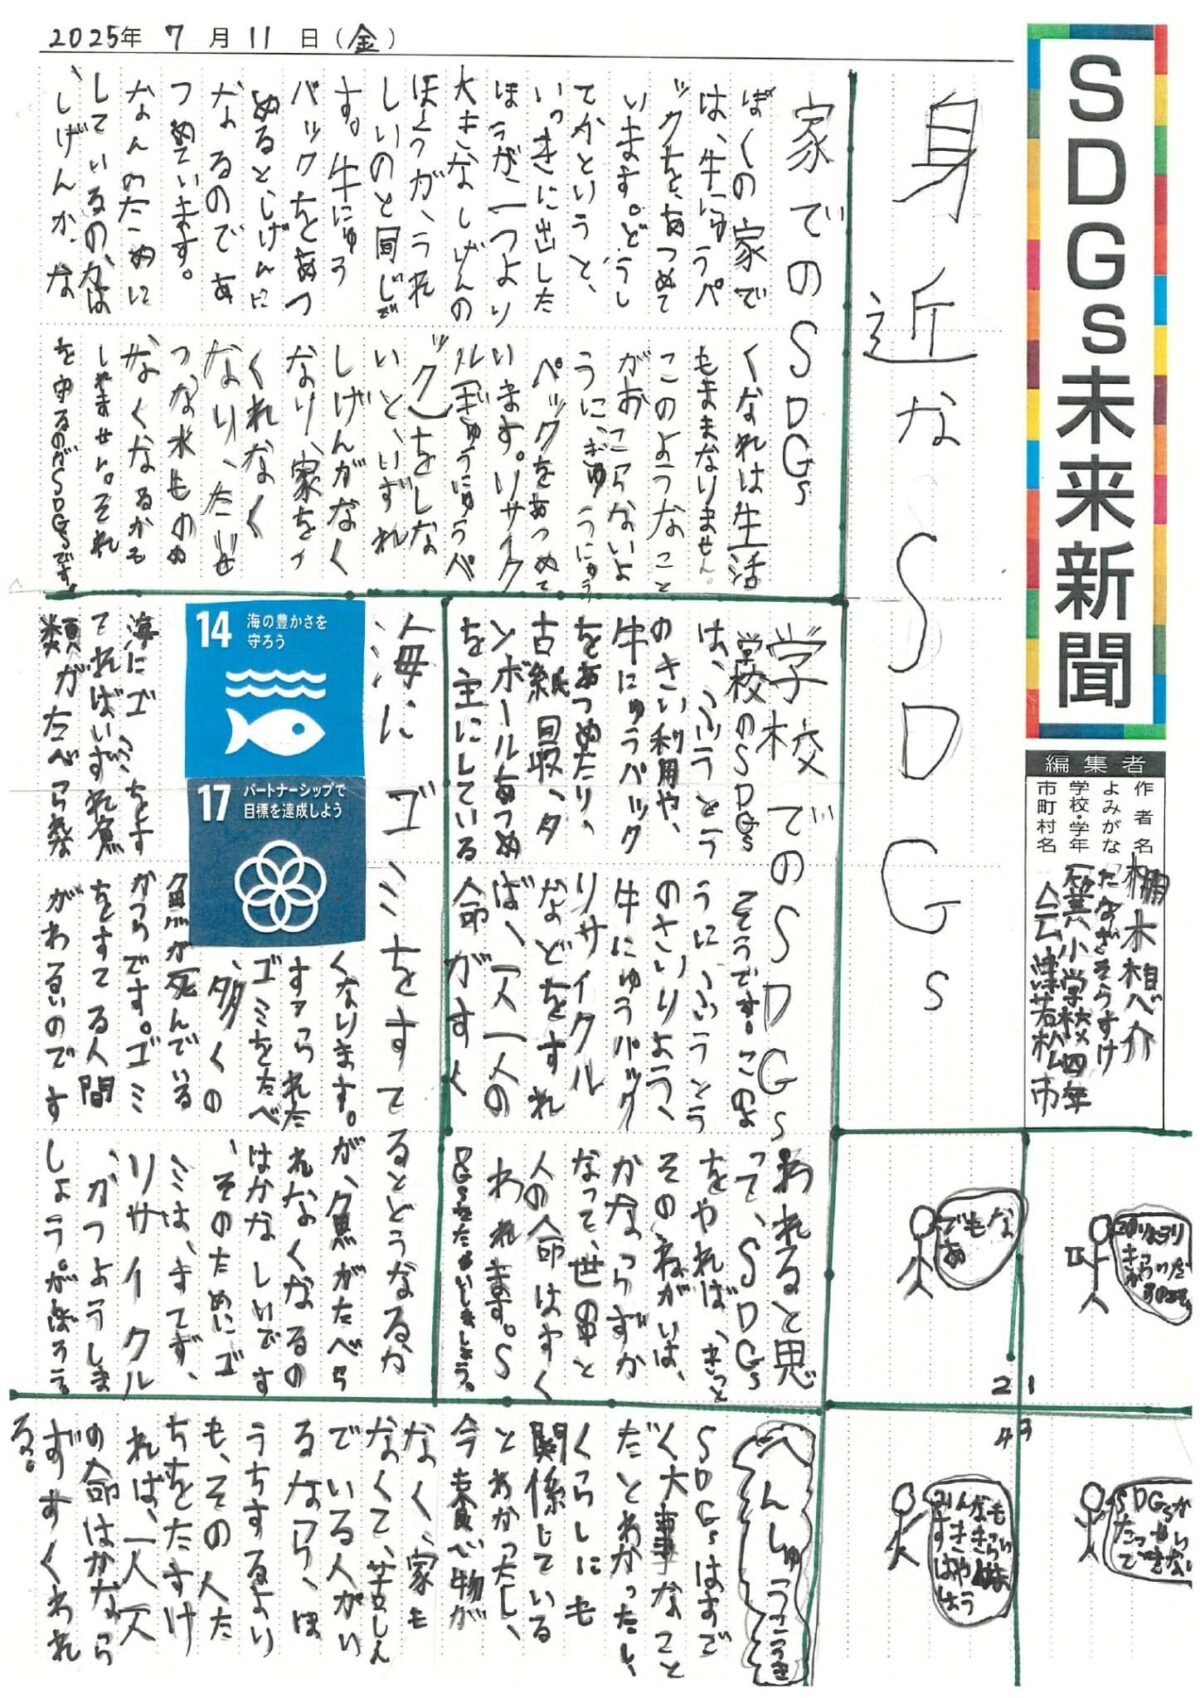 2025年 7月 11日(金)
SDGs未来新聞
編集者
作者名
よみがな
学校・学年
市町村名
たなぎそうすけ
小学校四年
会津若松市
身近なSDGs
家でのSDGs
ぼくの家で
は、牛にゅうパ
ックを、あつめて
います。どうし
てかというと、
いっきに出した
ほうが、一つより
大きなしげんの
ほうが、うれ
しいのと同じで
す。牛にゅう
パックをあつ
めると、しげんに
なるのであ
つめています。
なんのために
しているのかは
、しげんが、な
くなれは生活
もままなりません。
このようなこと
がおこらないよ
うに、ぎゅうにゅう
パックをあつめて
います。リサイク
ル(ぎゅうにゅうパ
ック)をしな
いと、いずれ
しげんがなく
なり、家をつ
くれなく
なり、たいせ
つな水ものめ
なくなるかも
しれません。それ
を守るのがSDGsです。
学校でのSDGs
学校のSDGs
は、ふうとう
のさい利用や、
牛にゅうパック
をあつめたり、
古紙回収、ダ
ンボールあつめ
を主にしている
そうです。このよ
うにふうとう
のさいりよう、
牛にゅうパック
リサイクル
などをすれ
ば、一人一人の
命がすく
われると思
って、SDGs
をやれば、きっと
そのねがいは、
かならずか
なって、世界と
人の命はすく
われます。S
海にゴミをすてるとどうなるか
14 海の豊かさを
守ろう
17 パートナーシップで
目標を達成しよう
海にゴミをす
てればいずれ魚
類がたべら
くなります。が、魚がたべら
すてられた
ゴミをたべ
、多くの
魚が死んでいる
からです。ゴミ
をすてる人間
がわるいのです
れなくなるの
はかなしいです
、そのためにゴ
ミは、すてず、
リサイクル
、かつようしま
しょう。がんばろう。
へんしゅうこうき
SDGsはすご
く大事なこと
だとわかったし、
くらしにも
関係している
とわかったし、
今食べ物が
なく、家も
なくて、苦しん
でいる人がい
るなら、ぼ
うちするより
も、その人た
ちをたすけ
れば、一人一人
の命はかなら
ずすくわれ
る。
1
2
でもな
あ
3
4